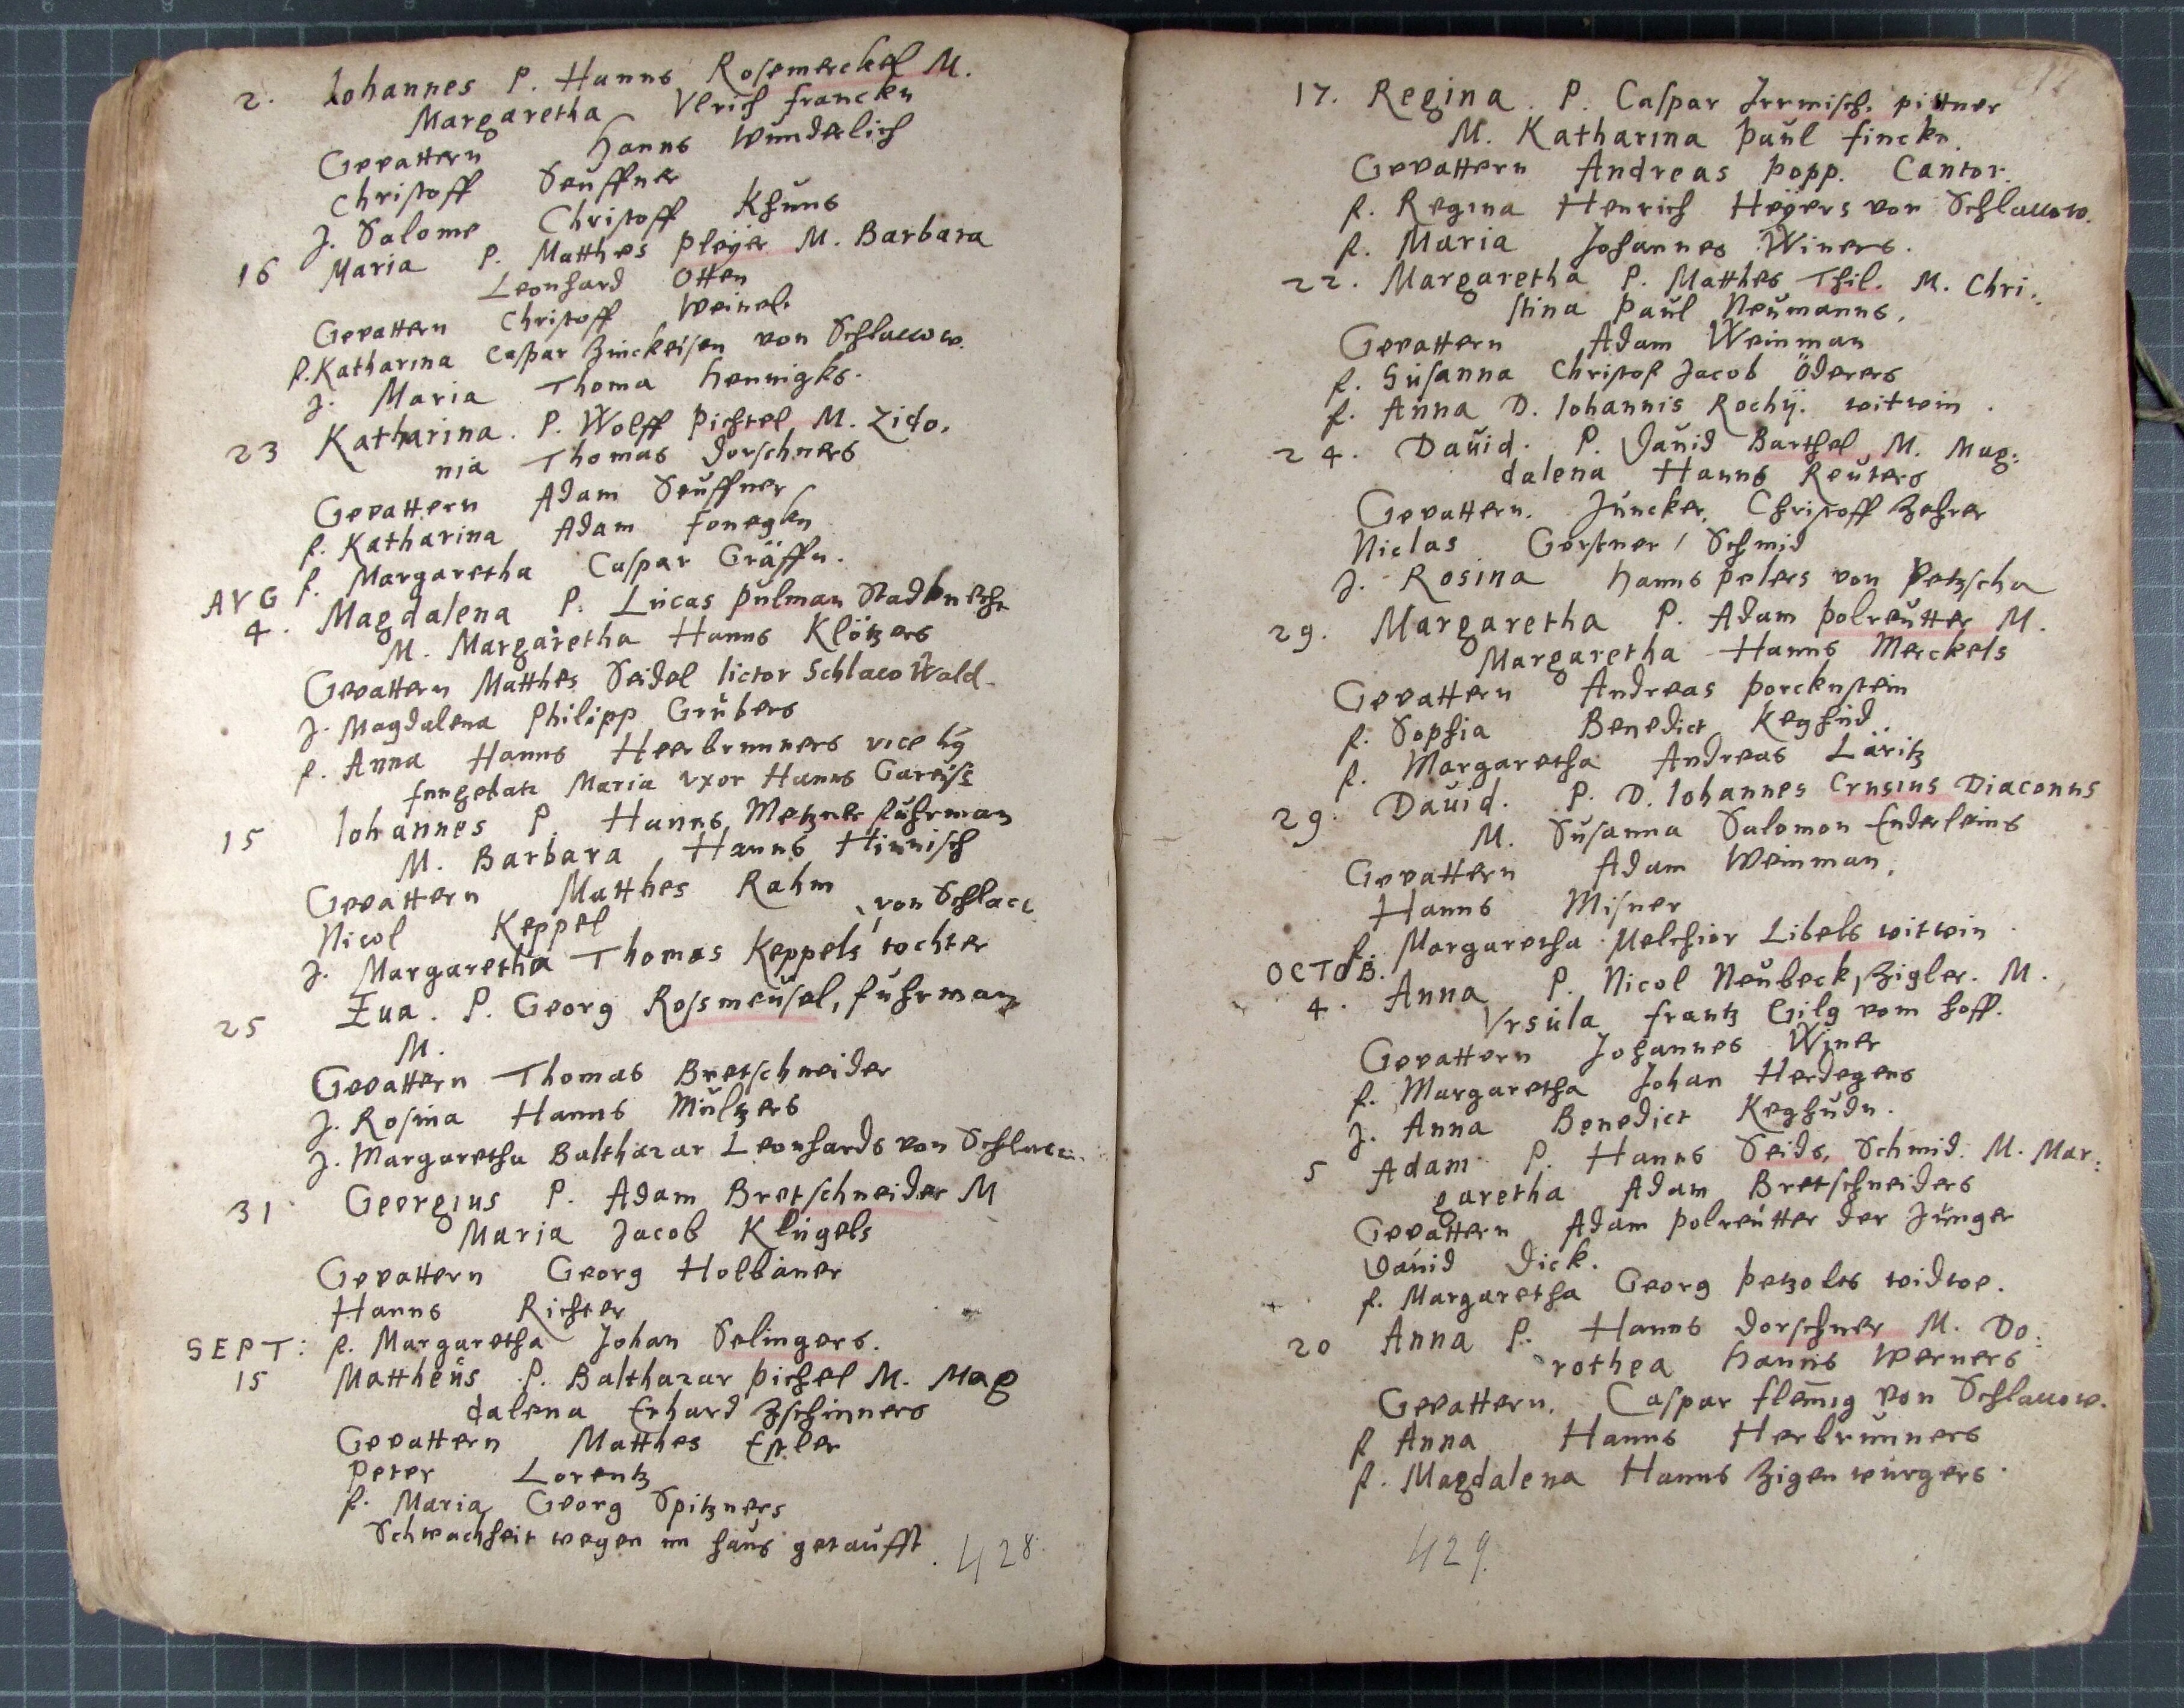 2. Iohannes P. Hanns Rosemerckel M.
Margaretha Vlrich Franckn
Gevattern Hanns Wunderlich
Christoff Seuffner
J. Salome Christoff Khuns
16 Maria P. Matthes Pleÿer M. Barbara
Leonhard Otten
Gevattern Christoff Weinel.
f. Katharina Caspar Zinckeisen von Schlackow.
J. Maria Thoma Hennigks.
23 Katharina. P. Wolff Pichtel M. Zido,
nia Thomas Dorschners
Gevattern Adam Seuffner
f. Katharina Adam
f. Margaretha Caspar Gräffn.
AVG
4. Magdalena P. Lucas Pulman Stadknecht
M. Margaretha Hanns Klötzers
Gevattern Matthes Seidel lictor Schlaco Wald
J. Magdalena Philipp Grubers
f. Anna Hanns Heerbrunners vice
Maria vxor Hanns Gareÿss
15 Iohannes P. Hanns Metzner fuhrman
M. Barbara Hanns Hinnisch
Gevattern Matthes Rahm
Nicol Keppel von Schlac
J. Margaretha Thomas Keppels tochter
25 Eua. P. Georg Rossmeusel, fuhrman
M.
Gevattern Thomas Bretschneider
J. Rosina Hanns Mültzers
J. Margaretha Balthazar Leonhards von
31 Georgius P. Adam Bretschneider M
Maria Jacob Klügels
Gevattern Georg Holbaner
Hanns Richter
SEPT: f. Margaretha Johan Selingers.
15 Mattheüs P. Balthazar Pichel M. Mag
dalena Erhard Zschinners
Gevattern Matthes Estler
Peter Lorentz
f. Maria Georg Spitzners
Schwachheit wegen im haus getaufft.
428
17. Regina. P. Caspar Irrmisch. pittner
M. Katharina Paul Finckn.
Gevattern Andreas Popp. Cantor.
f. Regina Henrich Heÿers von Schlackow.
f. Maria Johannes Winers.
22. Margaretha P. Matthes Thil. M. Chri:
stina Paul Neumanns.
Gevattern Adam Weinman
f. Susanna Christof Jacob Öderers
f. Anna D. Iohannis Rochÿ. witwin.
24. Dauid. P. Dauid Barthel M. Mag:
dalena Hanns Reuters
Gevattern. Juncker. Christoff Zehrer
Niclas Gerstner / Schmid
J. Rosina Hanns Pelers von Petzscha
29. Margaretha P. Adam Polreutter M.
Margaretha Hanns Merckels
Gevattern Andreas Porcknstein
f. Sophia Benedict Keghud.
f. Margaretha Andreas Läritz
29. Dauid. P. D. Iohannes Crusius Diaconus
M. Susanna Salomon Enderleins
Gevattern Adam Weinman.
Hanns Misner
f. Margaretha Melchior Libels witwin
OCTOB.
4. Anna P. Nicol Neubeck, Zigler. M.
Vrsula Frantz Gilg vom hoff.
Gevattern Johannes Winer
f. Margaretha Johan Herdegens
J. Anna Benedict Keghudn.
5 Adam P. Hanns Seids, Schmid. M. Mar:
garetha Adam Bretschneiders
Gevattern Adam Polreutter der Jünger
Dauid Dick.
f. Margaretha Georg Petzolts widwe.
20 Anna P. Hanns Dorschner M. Do:
rothea Hanns Werners
Gevattern. Caspar Flemig von Schlackow.
f Anna Hanns Herbrunners
f. Magdalena Hanns Zigenwürgers.
429.